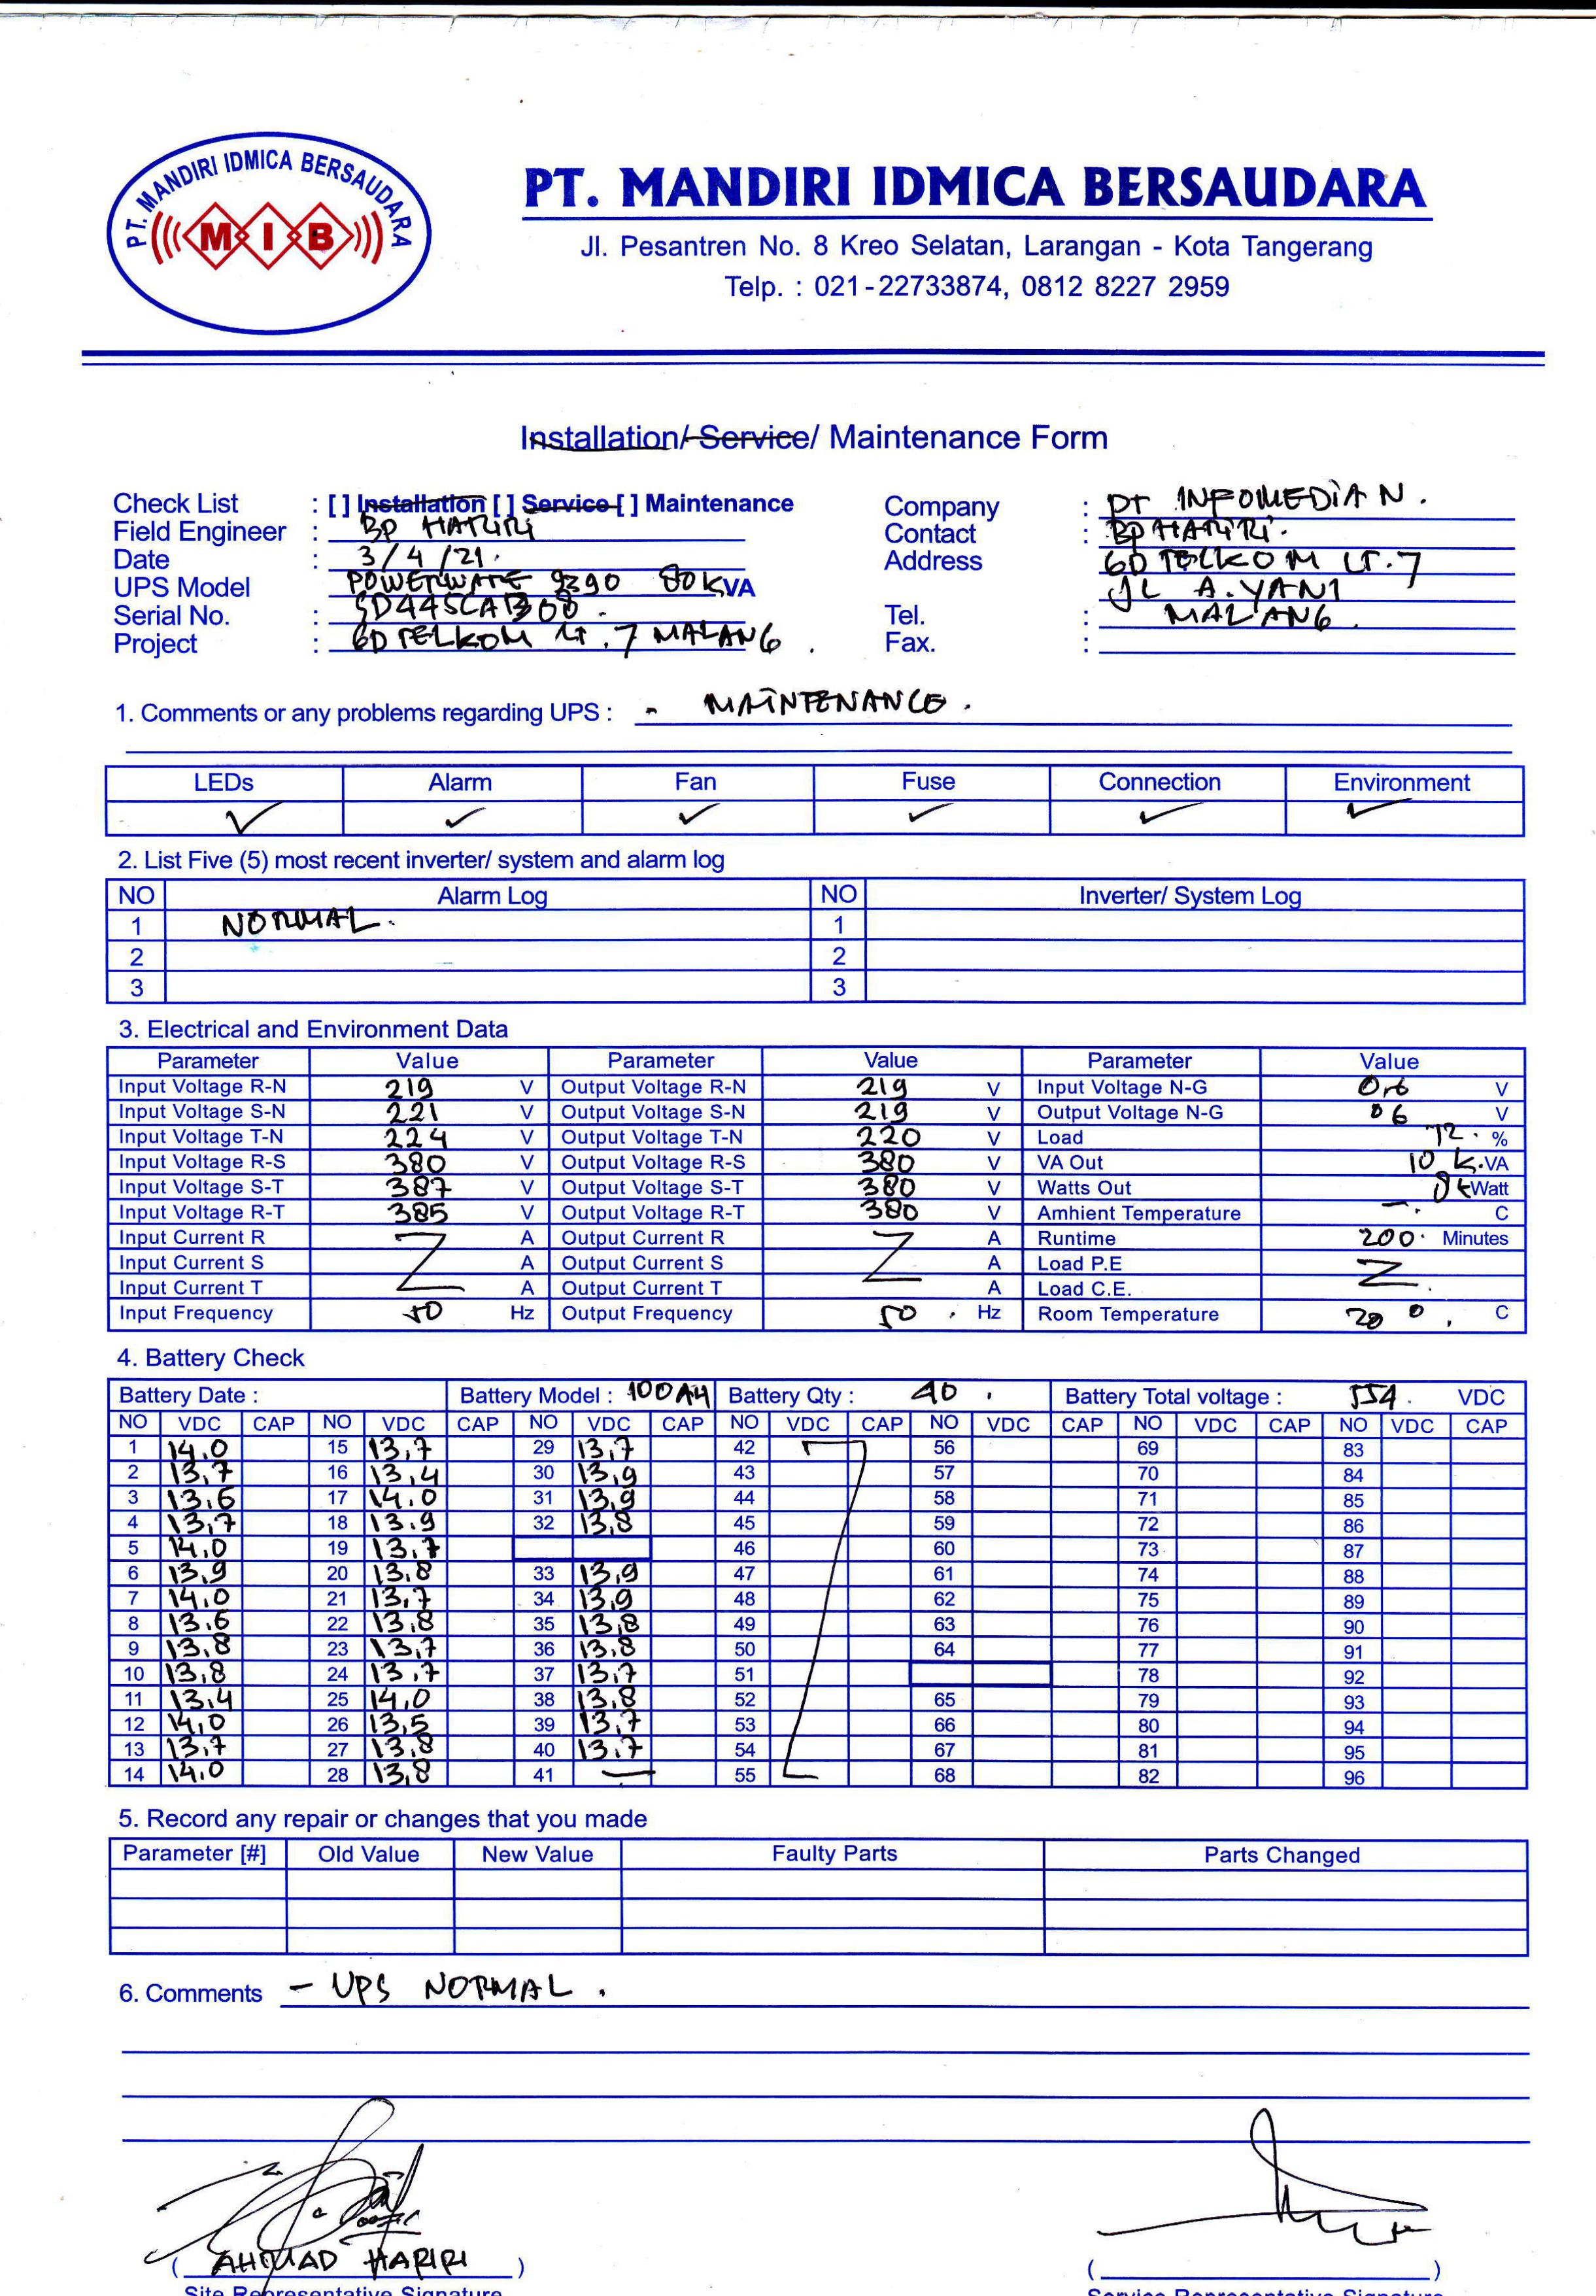 PT. MANDIRI IDMICA BERSAUDARA
M I B
PT. MANDIRI IDMICA BERSAUDARA
Jl. Pesantren No. 8 Kreo Selatan, Larangan - Kota Tangerang
Telp. : 021-22733874, 0812 8227 2959
Installation/ Service/ Maintenance Form
Check List : [ ] Installation [ ] Service [ ] Maintenance
Field Engineer : BP HARIRI
Date : 3/4/21.
UPS Model POWERWARE 9390 80 KVA
Serial No. :
Project : GD TELKOM LT.7 MALANG.
Company : PT INFOMEDIA N.
Contact : BP HARIRI.
Address GD TELKOM LT.7
JL A.YANI
Tel. : MALANG.
Fax. :
1. Comments or any problems regarding UPS : - MAINTENANCE.
LEDs Alarm Fan Fuse Connection Environment
✓ ✓ ✓ ✓ ✓ ✓
2. List Five (5) most recent inverter/ system and alarm log
NO Alarm Log NO Inverter/ System Log
1 NORMAL. 1
2 2
3 3
3. Electrical and Environment Data
Parameter Value Parameter Value Parameter Value
Input Voltage R-N 219 V Output Voltage R-N 219 V Input Voltage N-G V
Input Voltage S-N 221 V Output Voltage S-N 219 V Output Voltage N-G 06 V
Input Voltage T-N 224 V Output Voltage T-N 220 V Load 12. %
Input Voltage R-S 380 V Output Voltage R-S 380 V VA Out 10 K.VA
Input Voltage S-T 387 V Output Voltage S-T 380 V Watts Out Watt
Input Voltage R-T 385 V Output Voltage R-T 380 V Amhient Temperature —. C
Input Current R A Output Current R A Runtime 200. Minutes
Input Current S A Output Current S A Load P.E
Input Current T A Output Current T A Load C.E.
Input Frequency 50 Hz Output Frequency 50. Hz Room Temperature 20 °. C
4. Battery Check
Battery Date : Battery Model : 100AH Battery Qty : 40. Battery Total voltage : 554. VDC
NO VDC CAP NO VDC CAP NO VDC CAP NO VDC CAP NO VDC CAP NO VDC CAP NO VDC CAP
1 14,0 15 13,7 29 13,7 42 56 69 83
2 13,7 16 13,4 30 13,9 43 57 70 84
3 13,6 17 14,0 31 13,9 44 58 71 85
4 13,7 18 13.9 32 13,8 45 59 72 86
5 14,0 19 13,7 46 60 73 87
6 13,9 20 13,8 33 13,9 47 61 74 88
7 14,0 21 13,7 34 13,9 48 62 75 89
8 13,6 22 13,8 35 13,8 49 63 76 90
9 13,8 23 13,7 36 13,8 50 64 77 91
10 13,8 24 13,7 37 13,7 51 78 92
11 13,4 25 14,0 38 13,8 52 65 79 93
12 14,0 26 13,5 39 13,7 53 66 80 94
13 13,7 27 13,8 40 13,7 54 67 81 95
14 14,0 28 13,8 41 — 55 68 82 96
5. Record any repair or changes that you made
Parameter [#] Old Value New Value Faulty Parts Parts Changed
6. Comments - UPS NORMAL.
( AHMAD HARIRI ) ( )
Site Representative Signature Service Representative Signature